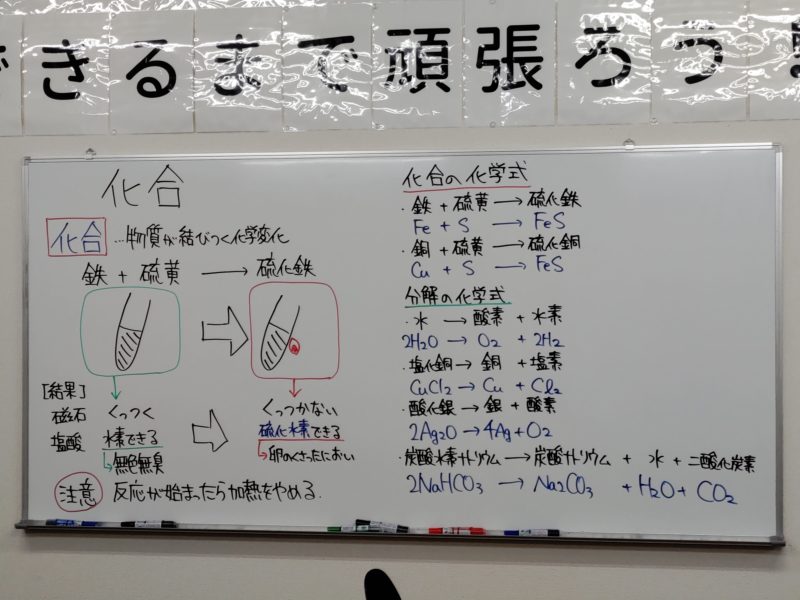 できるまで頑張ろう
化合
化合 …物質が結びつく化学変化
鉄 + 硫黄 → 硫化鉄
[結果]
磁石 くっつく くっつかない
塩酸 水素できる 硫化水素できる
→無色無臭 →卵のくさったにおい
注意 反応が始まったら加熱をやめる.
化合の化学式
・鉄 + 硫黄 → 硫化鉄
Fe + S → FeS
・銅 + 硫黄 → 硫化銅
Cu + S → FeS
分解の化学式
・水 → 酸素 + 水素
2H₂O → O₂ + 2H₂
・塩化銅 → 銅 + 塩素
CuCl₂ → Cu + Cl₂
・酸化銀 → 銀 + 酸素
2Ag₂O → 4Ag + O₂
・炭酸水素ナトリウム → 炭酸ナトリウム + 水 + 二酸化炭素
2NaHCO₃ → Na₂CO₃ + H₂O + CO₂